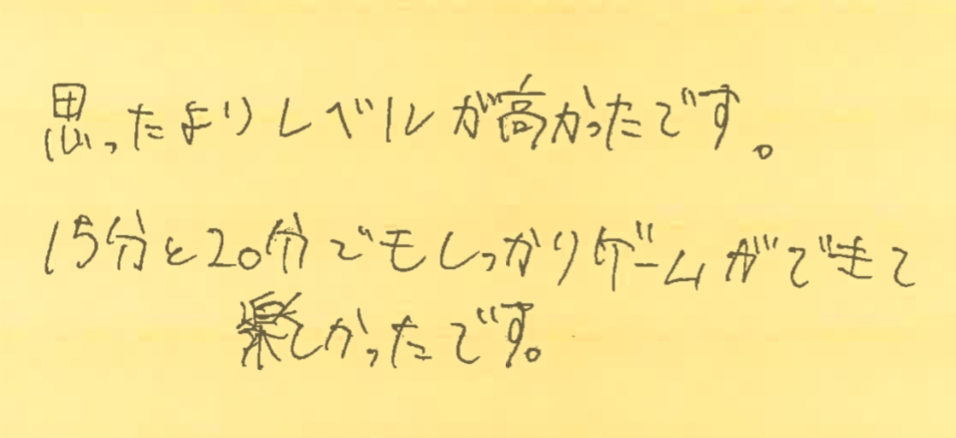 思ったよりレベルが高かったです。
15分と20分でもしっかりゲームができて
楽しかったです。